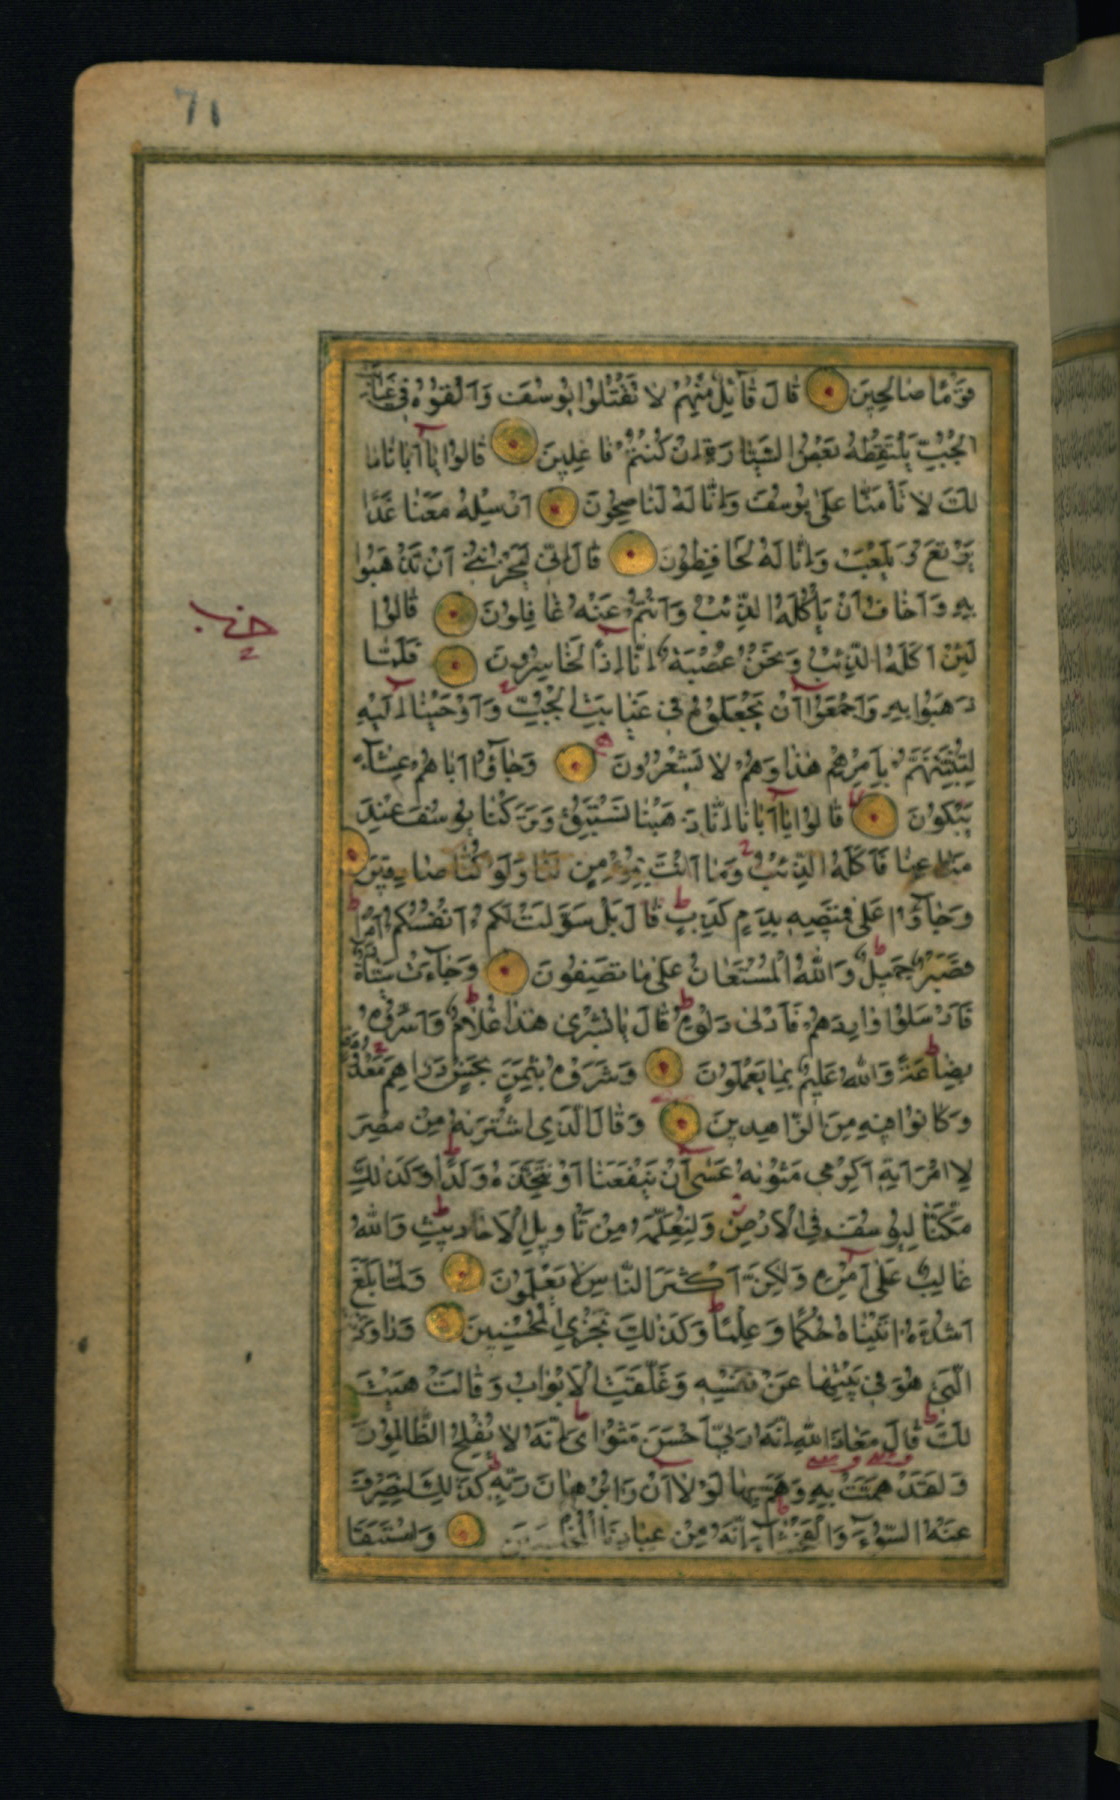 71
قَوْمًا صَالِحِينَ قَالَ قَآئِلٌ مِنْهُمْ لَا تَقْتُلُوا يُوسُفَ وَاَلْقُوْهُ فِي غَيَابَتِ
الْجُبِّ يَلْتَقِطْهُ بَعْضُ السَّيَّارَةِ اِنْ كُنْتُمْ فَاعِلِينَ قَالُوا يَآ اَبَانَا مَا
لَكَ لَا تَأْمَنَّا عَلٰى يُوسُفَ وَاِنَّا لَهُ لَنَاصِحُونَ اَرْسِلْهُ مَعَنَا غَدًا
يَرْتَعْ وَيَلْعَبْ وَاِنَّا لَهُ لَحَافِظُونَ قَالَ اِنِّي لَيَحْزُنُنِي اَنْ تَذْهَبُوا
بِهِ وَاَخَافُ اَنْ يَأْكُلَهُ الذِّئْبُ وَاَنْتُمْ عَنْهُ غَافِلُونَ قَالُوا
حزب
لَئِنْ اَكَلَهُ الذِّئْبُ وَنَحْنُ عُصْبَةٌ اِنَّا اِذًا لَخَاسِرُونَ فَلَمَّا
ذَهَبُوا بِهِ وَاَجْمَعُوْا اَنْ يَجْعَلُوهُ فِي غَيَابَتِ الْجُبِّ وَاَوْحَيْنَا اِلَيْهِ
لَتُنَبِّئَنَّهُمْ بِاَمْرِهِمْ هٰذَا وَهُمْ لَا يَشْعُرُونَ وَجَآؤُا اَبَاهُمْ عِشَآءً
يَبْكُونَ قَالُوا يَآ اَبَانَا اِنَّا ذَهَبْنَا نَسْتَبِقُ وَتَرَكْنَا يُوسُفَ عِنْدَ
مَتَاعِنَا فَاَكَلَهُ الذِّئْبُ وَمَا اَنْتَ بِمُؤْمِنٍ لَنَا وَلَوْ كُنَّا صَادِقِينَ
وَجَآؤُا عَلٰى قَمِيصِهِ بِدَمٍ كَذِبٍ قَالَ بَلْ سَوَّلَتْ لَكُمْ اَنْفُسُكُمْ اَمْرًا
فَصَبْرٌ جَمِيلٌ وَاللّٰهُ الْمُسْتَعَانُ عَلٰى مَا تَصِفُونَ وَجَآءَتْ سَيَّارَةٌ
فَاَرْسَلُوا وَارِدَهُمْ فَاَدْلٰى دَلْوَهُ قَالَ يَا بُشْرٰى هٰذَا غُلَامٌ وَاَسَرُّوهُ
بِضَاعَةً وَاللّٰهُ عَلِيمٌ بِمَا يَعْمَلُونَ وَشَرَوْهُ بِثَمَنٍ بَخْسٍ دَرَاهِمَ مَعْدُودَةٍ
وَكَانُوا فِيهِ مِنَ الزَّاهِدِينَ وَقَالَ الَّذِي اشْتَرٰيهُ مِنْ مِصْرَ
لِامْرَأَتِهِ اَكْرِمِي مَثْوٰيهُ عَسٰى اَنْ يَنْفَعَنَا اَوْ نَتَّخِذَهُ وَلَدًا وَكَذٰلِكَ
مَكَّنَّا لِيُوسُفَ فِي الْاَرْضِ وَلِنُعَلِّمَهُ مِنْ تَأْوِيلِ الْاَحَادِيثِ وَاللّٰهُ
غَالِبٌ عَلٰى اَمْرِهِ وَلٰكِنَّ اَكْثَرَ النَّاسِ لَا يَعْلَمُونَ وَلَمَّا بَلَغَ
اَشُدَّهُ اٰتَيْنَاهُ حُكْمًا وَعِلْمًا وَكَذٰلِكَ نَجْزِي الْمُحْسِنِينَ وَرَاوَدَتْهُ
الَّتِي هُوَ فِي بَيْتِهَا عَنْ نَفْسِهِ وَغَلَّقَتِ الْاَبْوَابَ وَقَالَتْ هَيْتَ
لَكَ قَالَ مَعَاذَ اللّٰهِ اِنَّهُ رَبِّي اَحْسَنَ مَثْوَايَ اِنَّهُ لَا يُفْلِحُ الظَّالِمُونَ
وَلَقَدْ هَمَّتْ بِهِ وَهَمَّ بِهَا لَوْلَا اَنْ رَاٰ بُرْهَانَ رَبِّهِ كَذٰلِكَ لِنَصْرِفَ
عَنْهُ السُّوٓءَ وَالْفَحْشَآءَ اِنَّهُ مِنْ عِبَادِنَا الْمُخْلَصِينَ وَاسْتَبَقَا